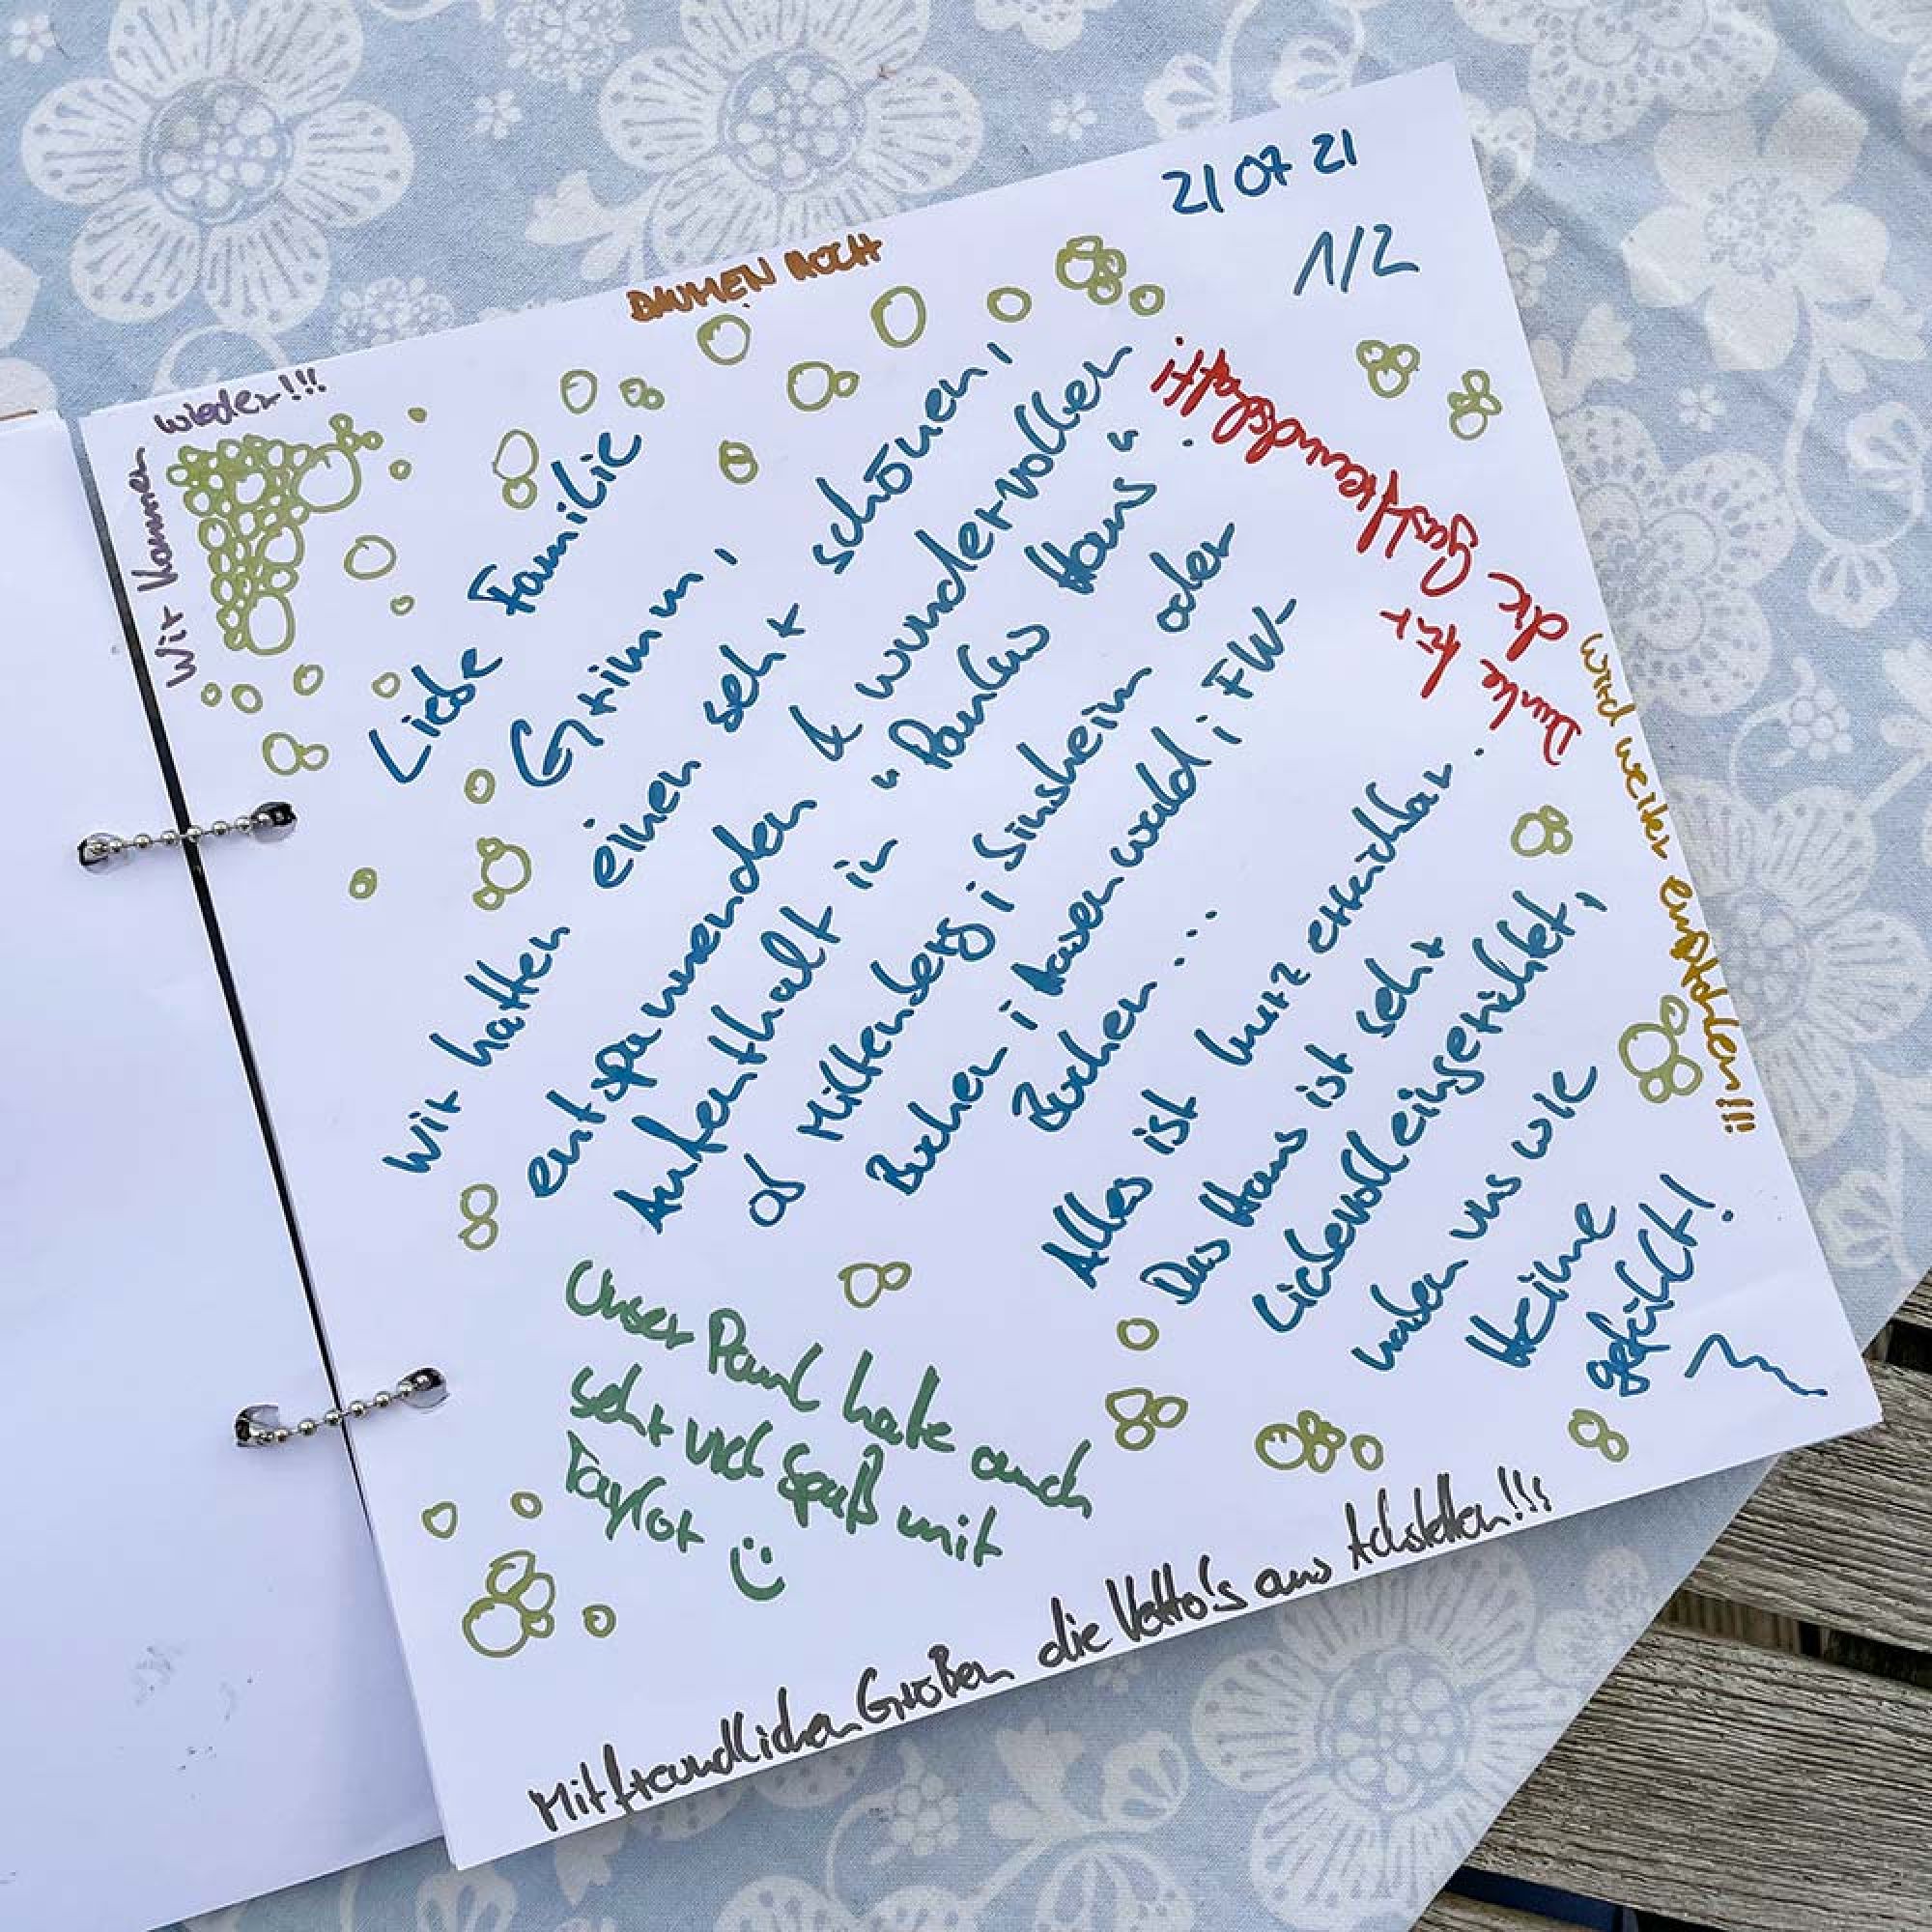 21 07 21
1/2
DAUMEN HOCH
Wir Kommen
wieder!!!
Liebe Familie
Grimm,
Wir hatten einen sehr schönen,
entspannenden & wundervollen
Aufenthalt in "Paulas Haus".
ob Miltenberg; Sinsheim oder
Buchen;
Buchen...
Alles ist kurz erreichbar.
Das Haus ist sehr
Liebevoll eingerichtet,
haben uns wie
Heime
gefühlt!
Danke für
die Gastfreundschaft!
wird weiter empfohlen!!!
Unser Paul hatte auch
sehr viel Spaß mit
Taylor
Mit freundlichen Grüßen die Votto's aus Achstetten!!!